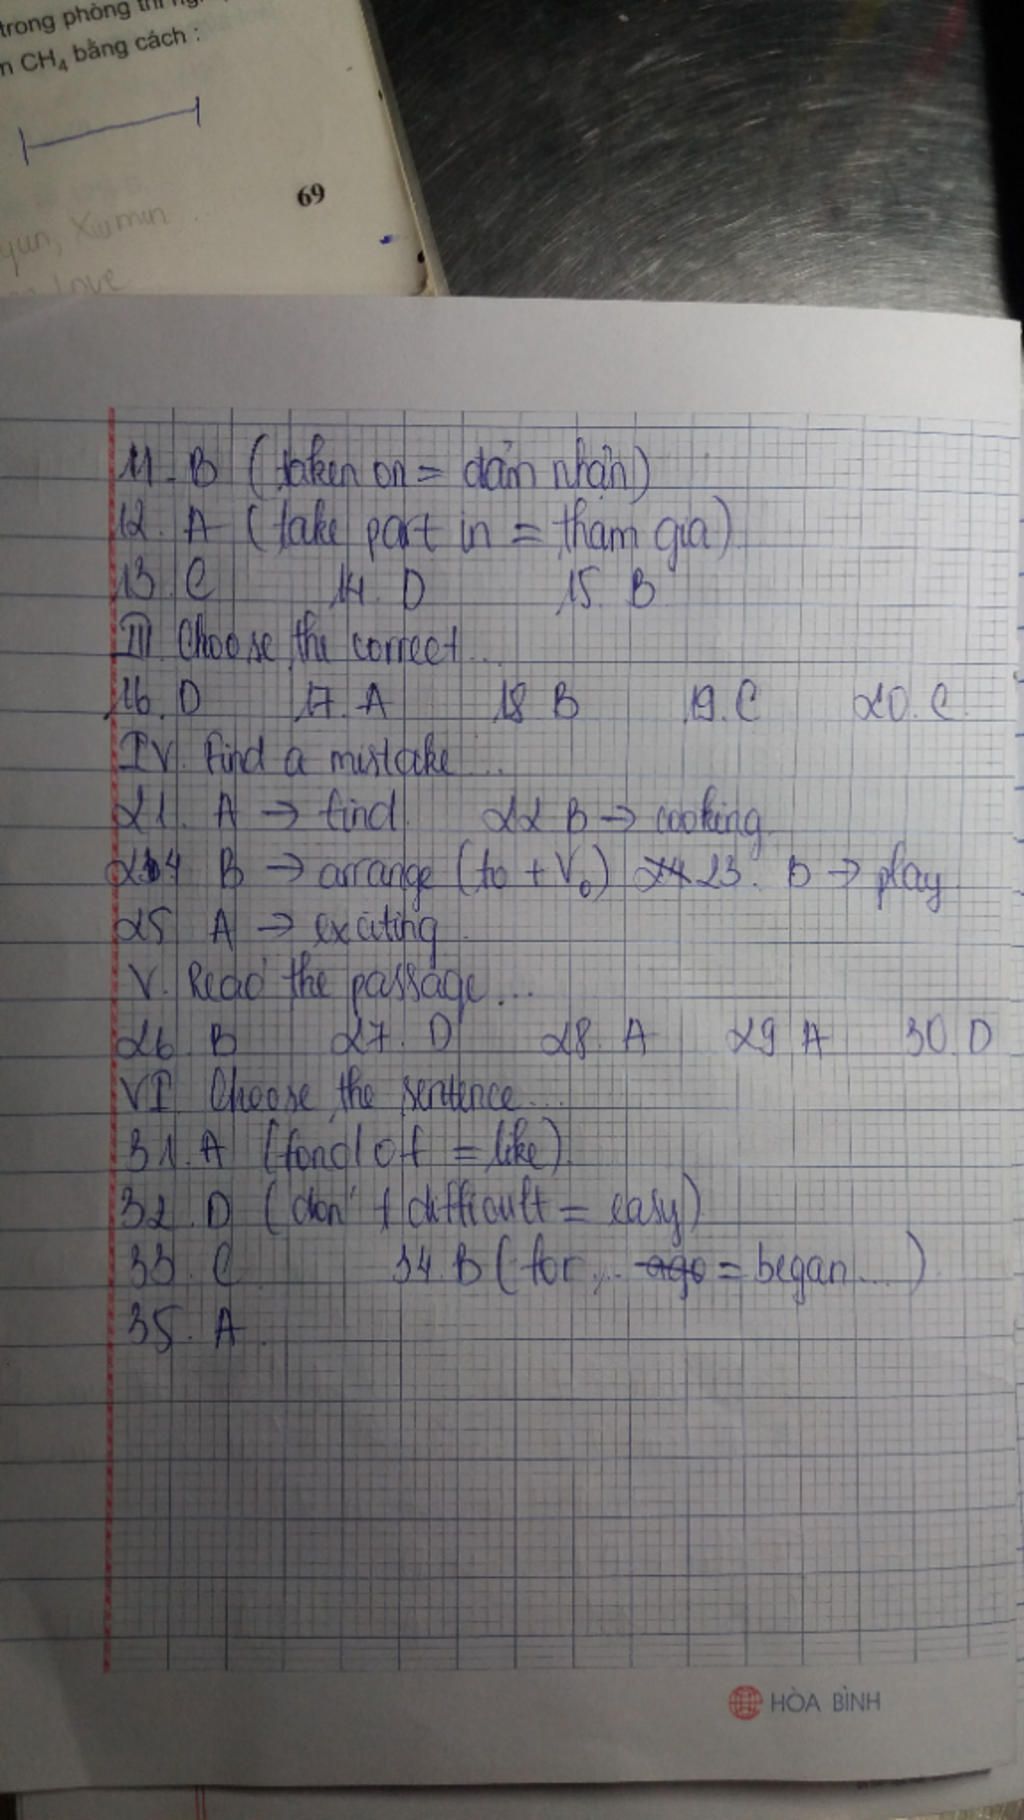 trong phòng thí
CH₄ bằng cách :
69
Xiumin
Love
11. B (taken on = đảm nhận)
12. A (take part in = tham gia)
13. C 14. D 15. B
III Choose the correct...
16. D 17. A 18 B 19. C 20. C.
IV. Find a mistake...
21. A → find. 22 B → cooking.
24 B → arrange (to + V₀) 23. B → play
25 A → exciting.
V. Read the passage...
26 B 27. D 28. A 29 A 30. D
VI Choose the sentence...
31. A (fond of = like).
32. D (don't difficult = easy)
33. C 34. B (for... ago = began...).
35. A.
HÒA BÌNH